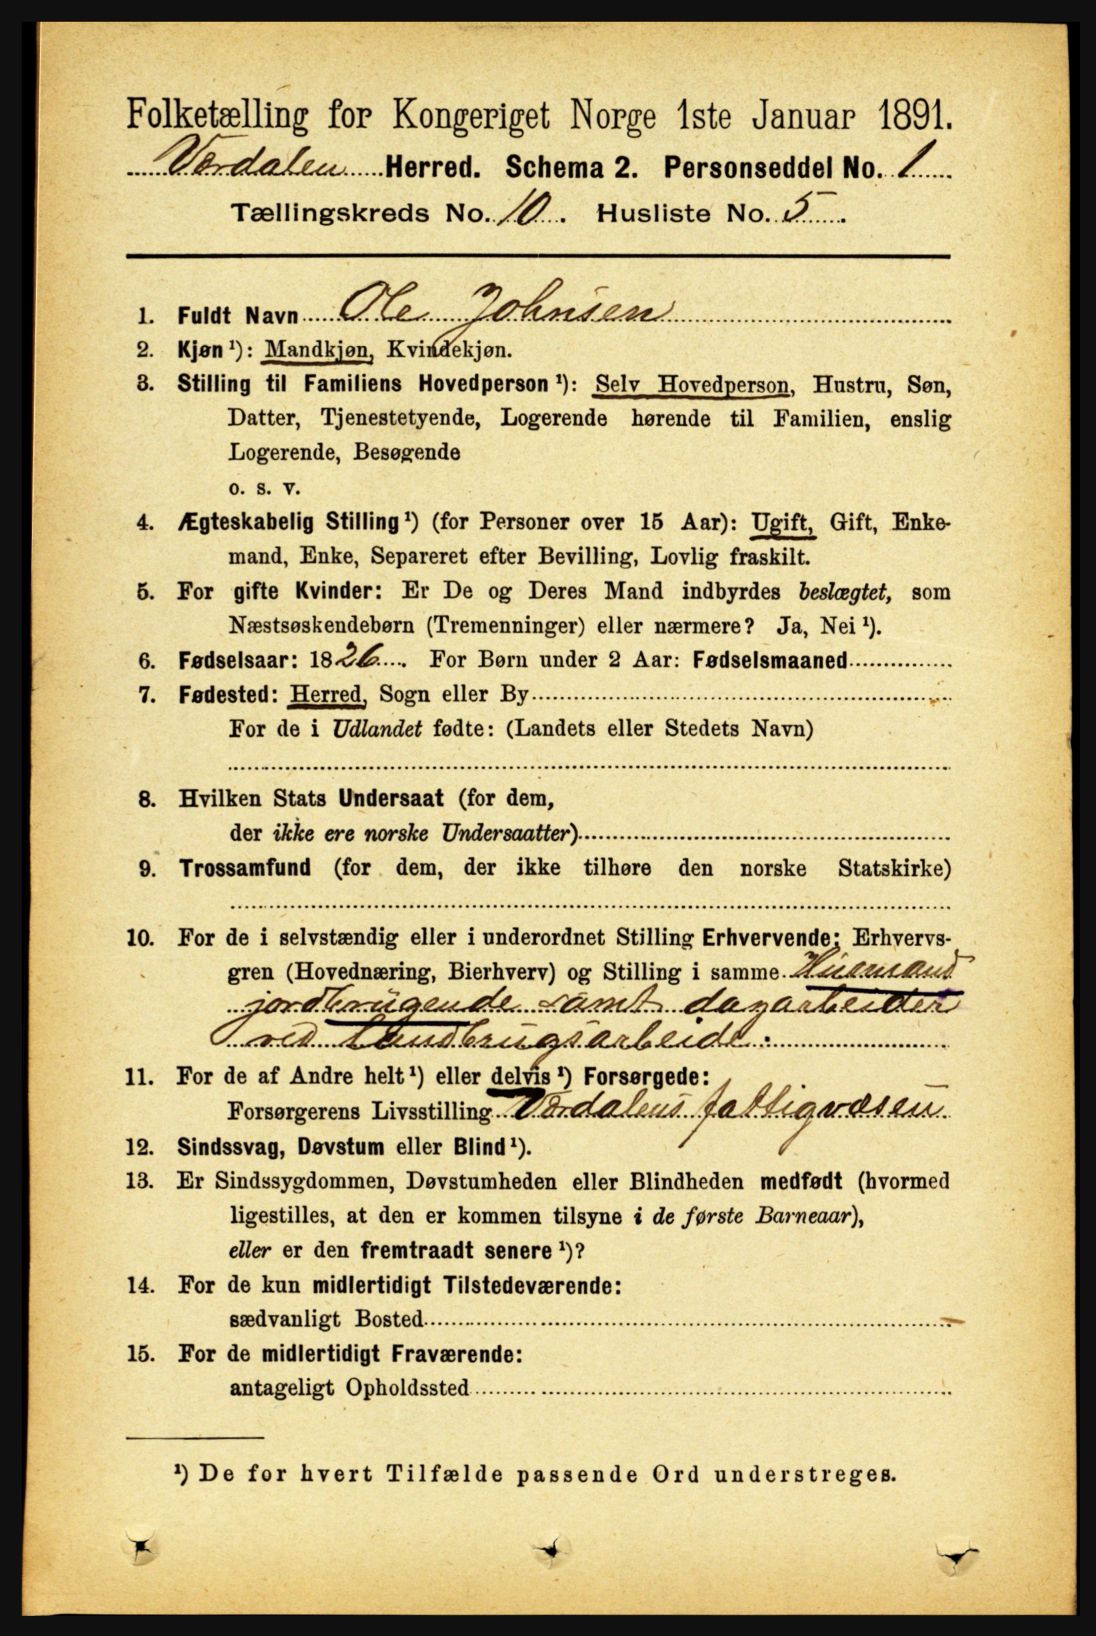 Folketælling for Kongeriget Norge 1ste Januar 1891.
Værdalen Herred. Schema 2. Personseddel No. 1
Tællingskreds No. 10. Husliste No. 5.
1. Fuldt Navn Ole Johnsen
2. Kjøn ¹): Mandkjøn, Kvindekjøn.
3. Stilling til Familiens Hovedperson ¹): Selv Hovedperson, Hustru, Søn,
Datter, Tjenestetyende, Logerende hørende til Familien, enslig
Logerende, Besøgende
o. s. v.
4. Ægteskabelig Stilling ¹) (for Personer over 15 Aar): Ugift, Gift, Enke-
mand, Enke, Separeret efter Bevilling, Lovlig fraskilt.
5. For gifte Kvinder: Er De og Deres Mand indbyrdes beslægtet, som
Næstsøskendebørn (Tremenninger) eller nærmere? Ja, Nei ¹).
6. Fødselsaar: 1826. For Børn under 2 Aar: Fødselsmaaned
7. Fødested: Herred, Sogn eller By
For de i Udlandet fødte: (Landets eller Stedets Navn)
8. Hvilken Stats Undersaat (for dem,
der ikke ere norske Undersaatter)
9. Trossamfund (for dem, der ikke tilhøre den norske Statskirke)
10. For de i selvstændig eller i underordnet Stilling Erhvervende: Erhvervs-
gren (Hovednæring, Bierhverv) og Stilling i samme Husmand
jordbrugende samt dagarbeider
ved Landbrugsarbeide.
11. For de af Andre helt ¹) eller delvis ¹) Forsørgede:
Forsørgerens Livsstilling Værdalens fattigvæsen
12. Sindssvag, Døvstum eller Blind ¹).
13. Er Sindssygdommen, Døvstumheden eller Blindheden medfødt (hvormed
ligestilles, at den er kommen tilsyne i de første Barneaar),
eller er den fremtraadt senere ¹)?
14. For de kun midlertidigt Tilstedeværende:
sædvanligt Bosted
15. For de midlertidigt Fraværende:
antageligt Opholdssted
¹) De for hvert Tilfælde passende Ord understreges.